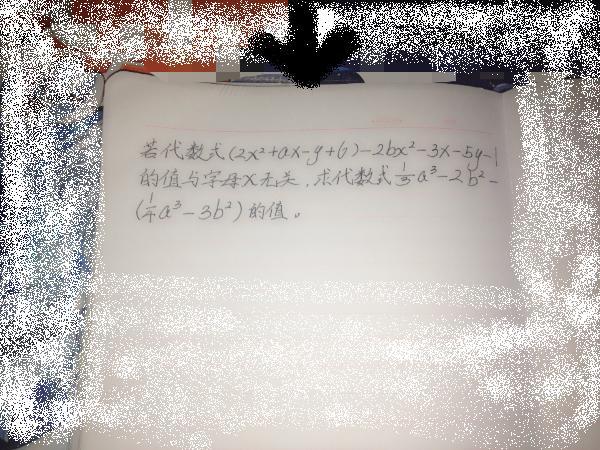 若代数式(2x²+ax-y+6)-2bx²-3x-5y-1
的值与字母x无关,求代数式\frac{1}{3}a³-2b²-
(\frac{1}{4}a³-3b²)的值。